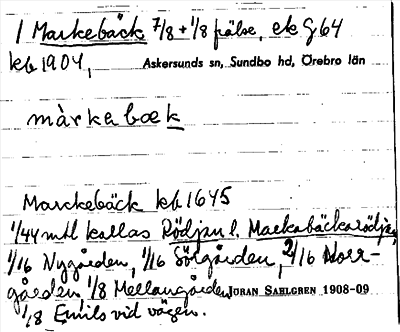 1 Markebäck 7/8 + 1/8 frälse, ek G 64
kb 1904,
Askersunds sn, Sundbo hd, Örebro län
màrkabæk
Marckebäck kb 1645
1/44 mtl kallas Rödjan l. Markabäcksrödjan,
1/16 Nygården, 1/16 Sörgården, 2/16 Norr-
gården 1/8 Mellangården,
JÖRAN SAHLGREN 1908-09
1/8 Emils vid vägen.